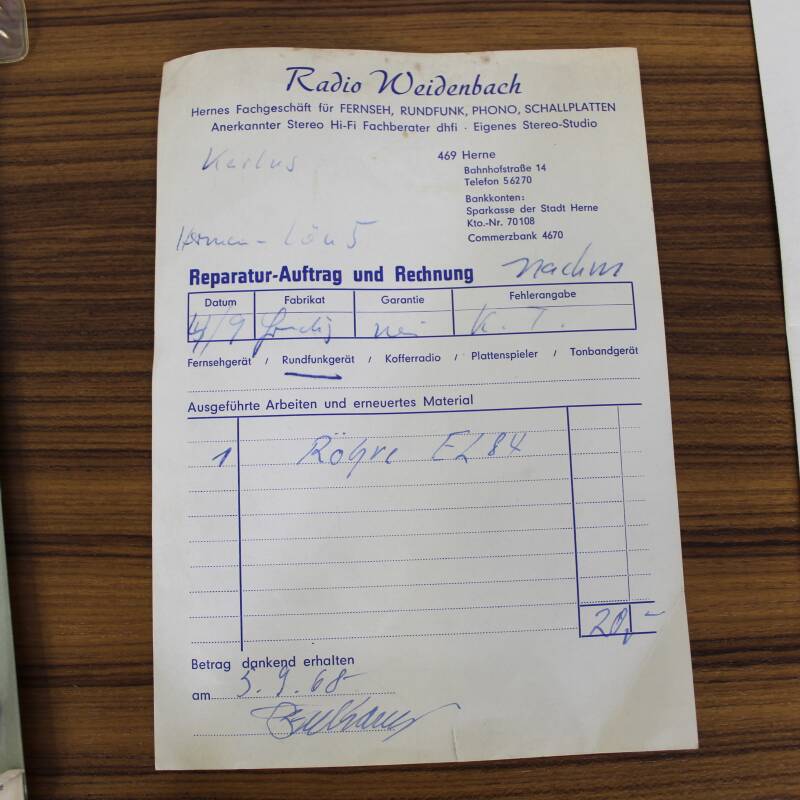 Radio Weidenbach
Hernes Fachgeschäft für FERNSEH, RUNDFUNK, PHONO, SCHALLPLATTEN
Anerkannter Stereo Hi-Fi Fachberater dhfi · Eigenes Stereo-Studio
469 Herne
Bahnhofstraße 14
Telefon 56270
Bankkonten:
Sparkasse der Stadt Herne
Kto.-Nr. 70108
Commerzbank 4670
Reparatur-Auftrag und Rechnung
Datum Fabrikat Garantie Fehlerangabe
4/9 nein K. T.
Fernsehgerät / Rundfunkgerät / Kofferradio / Plattenspieler / Tonbandgerät
Ausgeführte Arbeiten und erneuertes Material
1 Röhre EL 84
20,-
Betrag dankend erhalten
am 5.9.68